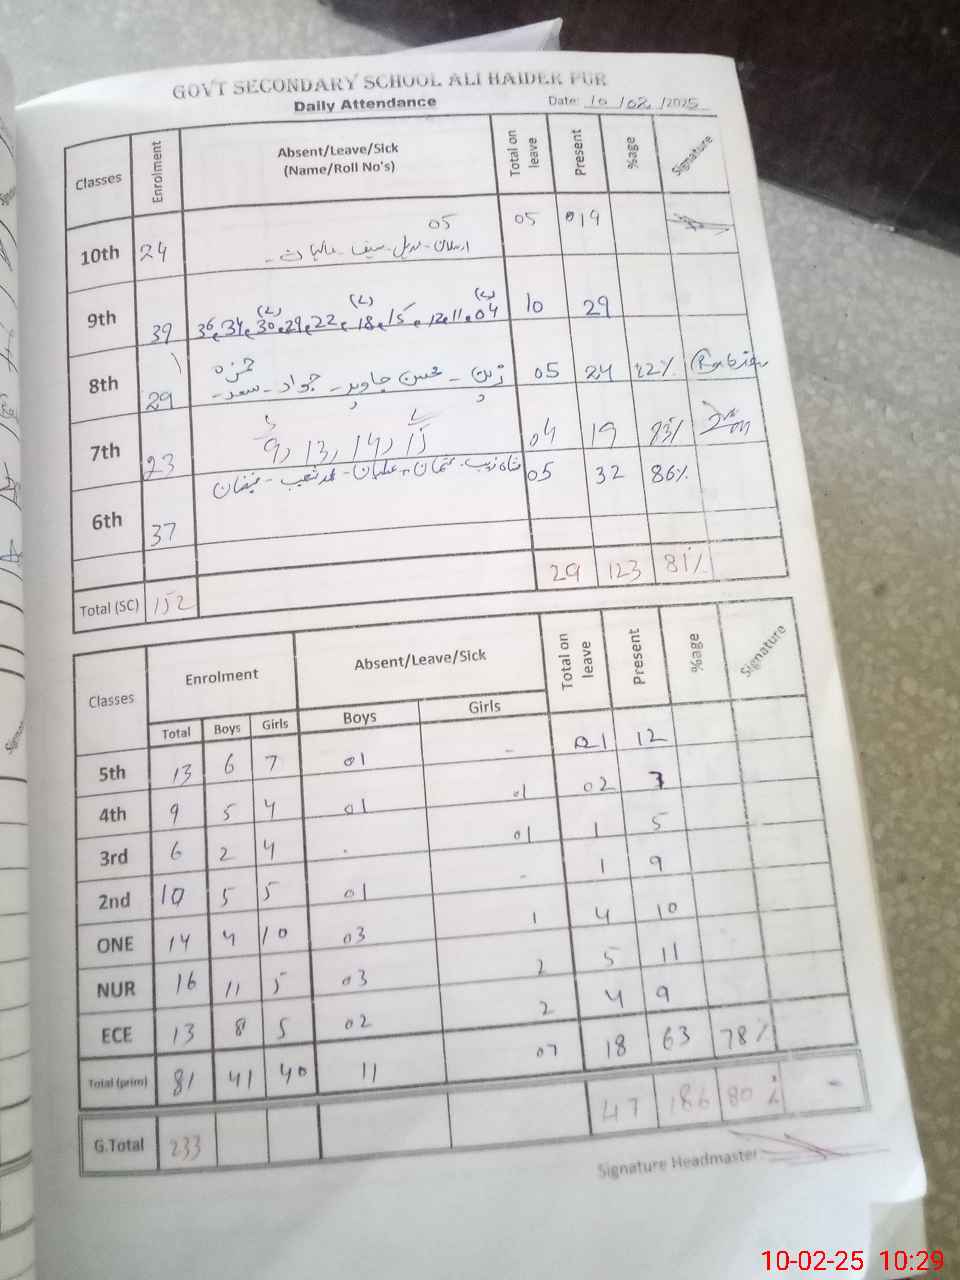 GOVT SECONDARY SCHOOL ALI HAIDER PUR
Daily Attendance Date: 10/02/2025
Classes Enrolment Absent/Leave/Sick (Name/Roll No's) Total on leave Present %age Signature
05
10th 24 05 19
9th 39 36, 34, 30, 29, 22, 18, 15, 12, 11, 04 10 29
(L) (L) (L)
حمزہ
8th 29 زین - محسن جاوید - جواد - سعد - 05 24 82%
7th 23 9, 13, 14, 15 04 19 83%
6th 37 شاہ زیب - عثمان - - فیضان 05 32 86%
29 123 81%
Total (SC) 152
Classes Enrolment Absent/Leave/Sick Total on leave Present %age Signature
Total Boys Girls Boys Girls
5th 13 6 7 01 - 01 12
4th 9 5 4 01 01 02 7
3rd 6 2 4 . 01 1 5
2nd 10 5 5 01 - 1 9
ONE 14 4 10 03 1 4 10
NUR 16 11 5 03 2 5 11
ECE 13 8 5 02 2 4 9
Total (prim) 81 41 40 11 07 18 63 78%
G.Total 233 47 186 80% -
Signature Headmaster
10-02-25 10:29